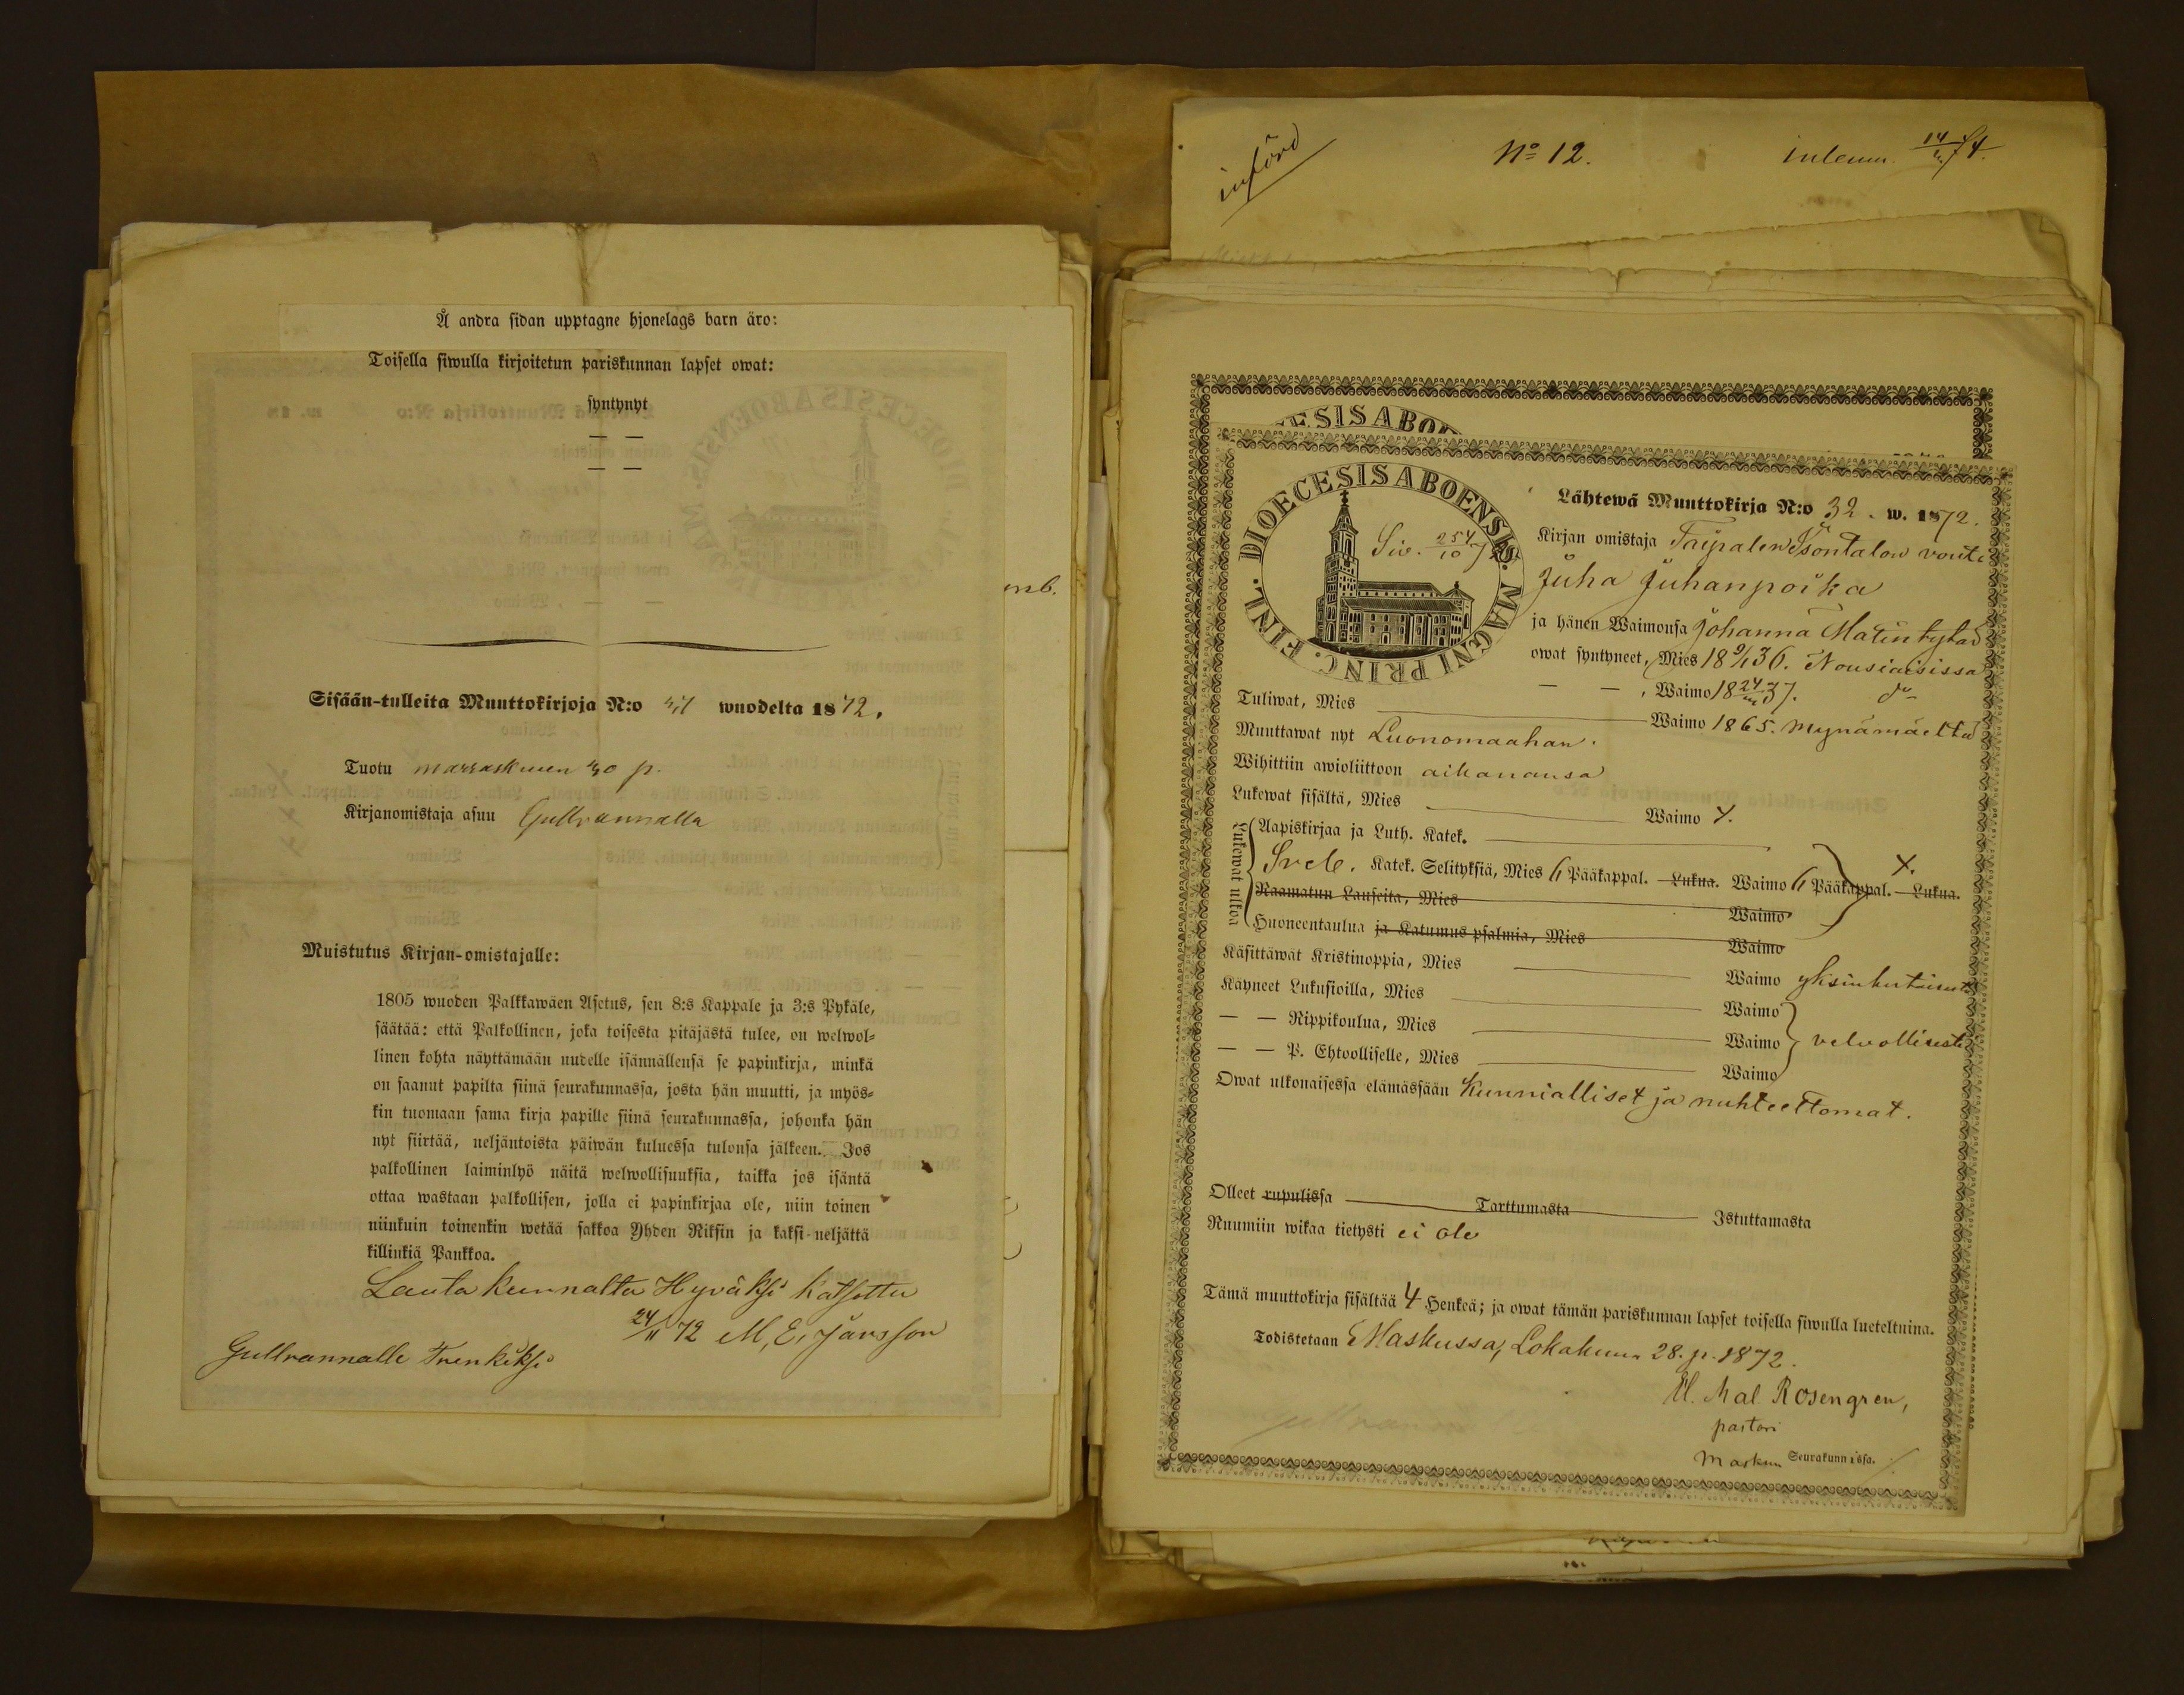 Å andra sidan upptagne hjonelags barn äro:
Toisella siwulla kirjoitetun pariskunnan lapset owat:
syntynyt
— —
— —
Sisään-tulleita Muuttokirjoja N:o wuodelta 1872.
Tuotu marraskuun 30 p.
Kirjanomistaja asuu Gullrannalla
Muistutus Kirjan-omistajalle:
1805 wuoden Palkkawäen Asetus, sen 8:s Kappale ja 3:s Pykäle,
säätää: että Palkollinen, joka toisesta pitäjästä tulee, on welwol=
linen kohta näyttämään uudelle isännällensä se papinkirja, minkä
on saanut papilta siinä seurakunnassa, josta hän muutti, ja myös=
kin tuomaan sama kirja papille siinä seurakunnassa, johonka hän
nyt siirtää, neljäntoista päiwän kuluessa tulonsa jälkeen. Jos
palkollinen laiminlyö näitä welwollisuuksia, taikka jos isäntä
ottaa wastaan palkollisen, jolla ei papinkirjaa ole, niin toinen
niinkuin toinenkin wetää sakkoa Yhden Riksin ja kaksi-neljättä
killinkiä Pankkoa.
Lautakunnalta Hyväksi katsottu
24/11 72 M. E. Jansson
Gullrannalle Trenkiksi
mb.
införd
No 12.
inlemn. 74.
DIOECESIS ABOENSIS. MAGNI PRINC. FINL.
Siv. 254
Lähtewä Muuttokirja N:o 32. w. 1872.
Kirjan omistaja Taipalen vouti
Juha Juhanpoika
ja hänen Waimonsa Johanna Matintytär
owat syntyneet, Mies 18 9/1 36. Nousiaisissa
— —, Waimo 18 37. do
Tuliwat, Mies Waimo 1865. Mynämäeltä
Muuttawat nyt Luonomaahan.
Wihittiin awioliittoon aikanansa
Lukewat sisältä, Mies Waimo 4.
Lukewat ulkoa
Aapiskirjaa ja Luth. Katek.
Sveb. Katek. Selityksiä, Mies 6 Pääkappal. Lukua. Waimo 6 Pääkappal. Lukua.
Raamatun Lauseita, Mies Waimo
Huoneentaulua ja Katumus psalmia, Mies Waimo
Käsittäwät Kristinoppia, Mies Waimo yksinkertaisesti
Käyneet Lukusioilla, Mies Waimo
— — Rippikoulua, Mies Waimo velvollisesti
— — P. Ehtoolliselle, Mies Waimo
Owat ulkonaisessa elämässään kunnialliset ja nuhteettomat.
Olleet rupulissa Tarttumasta Istuttamasta
Ruumiin wikaa tietysti ei ole
Tämä muuttokirja sisältää 4 Henkeä; ja owat tämän pariskunnan lapset toisella siwulla lueteltuina.
Todistetaan Maskussa, Lokakuun 28. p. 1872.
Mal Rosengren,
pastori
Maskun Seurakunnissa.